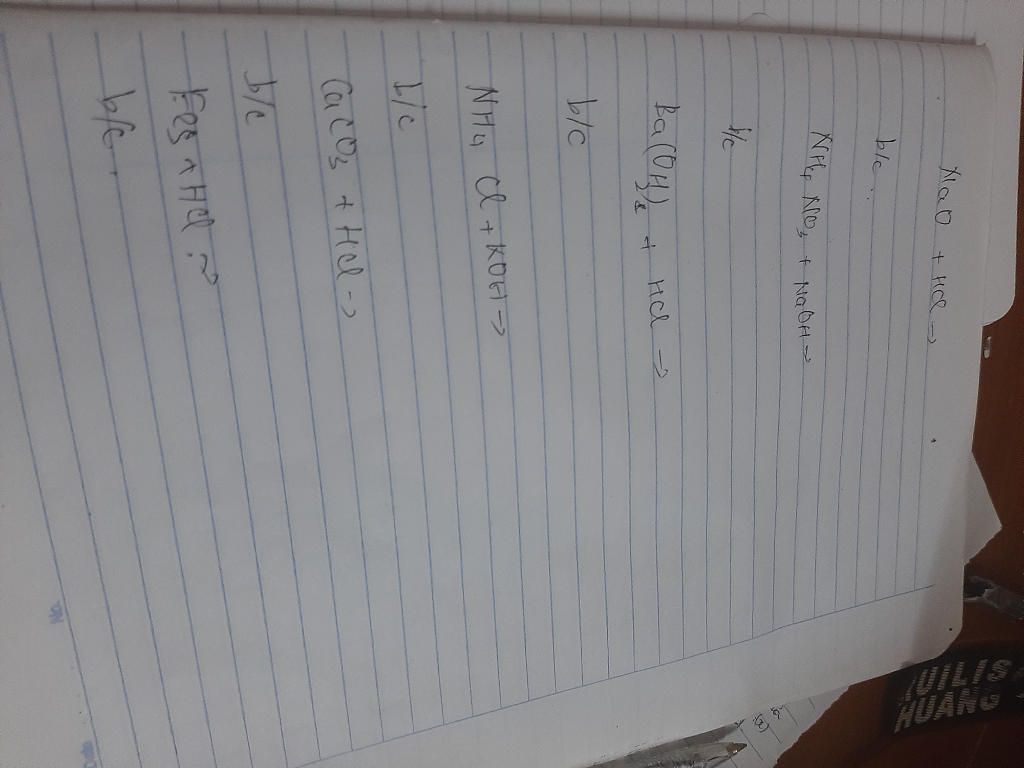 NaO + HCl →
b/c .
NH4 NO3 + NaOH →
b/c
Ba(OH)2 + HCl →
b/c
NH4 Cl + KOH →
b/c
CaCO3 + HCl →
b/c
+ HCl
b/c .
No.
Date
HUANG